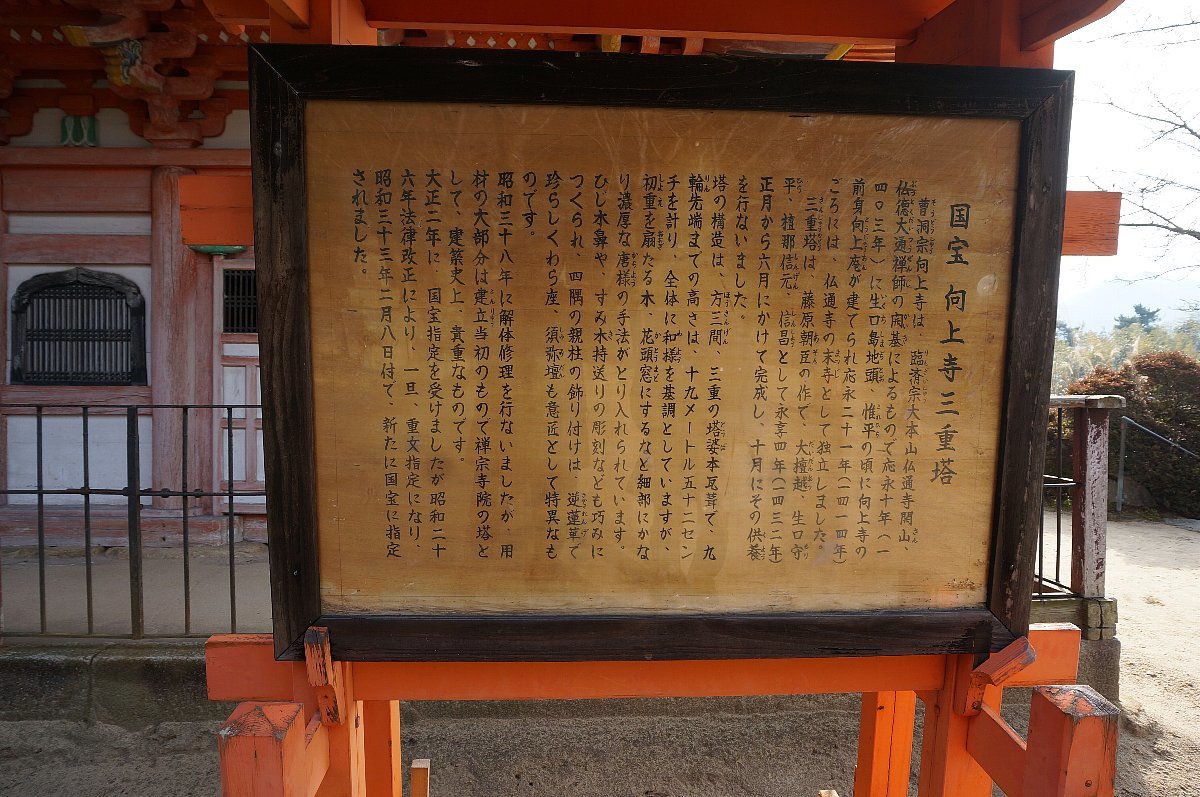 国宝 向上寺三重塔
曹洞宗向上寺は、臨済宗大本山仏通寺開山、
仏徳大通禅師の開基によるもので応永十年（一
四〇三年）に生口島地頭、惟平の頃に向上寺の
前身向上庵が建てられ応永二十一年（一四一四年）
ごろには、仏通寺の末寺として独立しました。
三重塔は、藤原朝臣の作で、大檀越、生口守
平、檀那信元、信昌として永享四年（一四三二年）
正月から六月にかけて完成し、十月にその供養
を行ないました。
塔の構造は、方三間、三重の塔婆本瓦葺で、九
輪先端までの高さは、十九メートル五十二セン
チを計り、全体に和様を基調としていますが、
初重を扇たる木、花頭窓にするなど細部にかな
り濃厚な唐様の手法がとり入れられています。
ひじ木鼻や、すみ木持送りの彫刻なども巧みに
つくられ、四隅の親柱の飾り付けは、逆蓮華で
珍らしくわら座、須弥壇も意匠として特異なも
のです。
昭和三十八年に解体修理を行ないましたが、用
材の大部分は建立当初のもので禅宗寺院の塔と
して、建築史上、貴重なものです。
大正二年に、国宝指定を受けましたが昭和二十
六年法律改正により、一旦、重文指定になり、
昭和三十三年二月八日付で、新たに国宝に指定
されました。